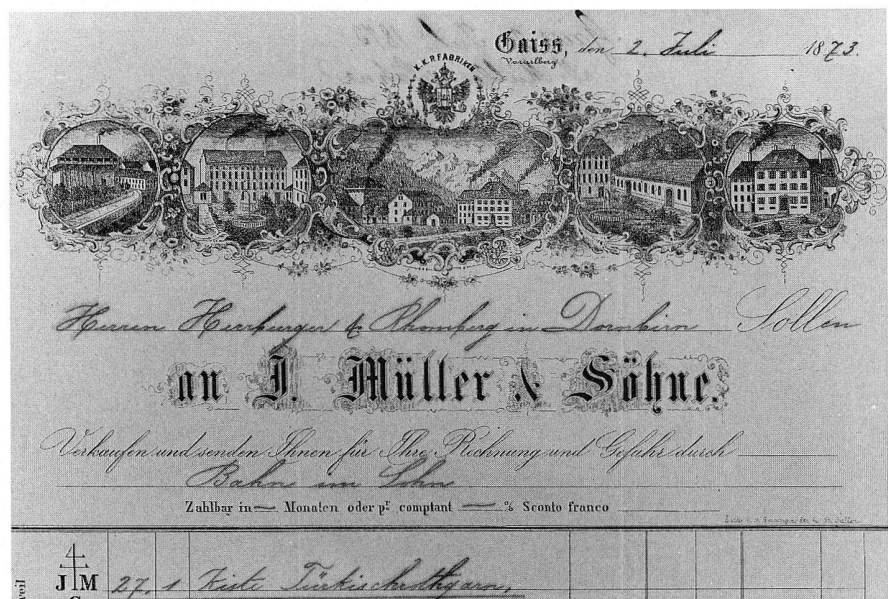 Gaiss, den 2. Juli 1873.
Vorarlberg
K.K.P. FABRIKEN
Herren Herrburger & Rhomberg in Dornbirn Sollen
an J. Müller & Söhne.
Verkaufen und senden Ihnen für Ihre Rechnung und Gefahr durch
Bahn im Lohn
Zahlbar in — Monaten oder pr comptant — % Sconto franco
J M 27. 1 Kiste Türkischrothgarn,